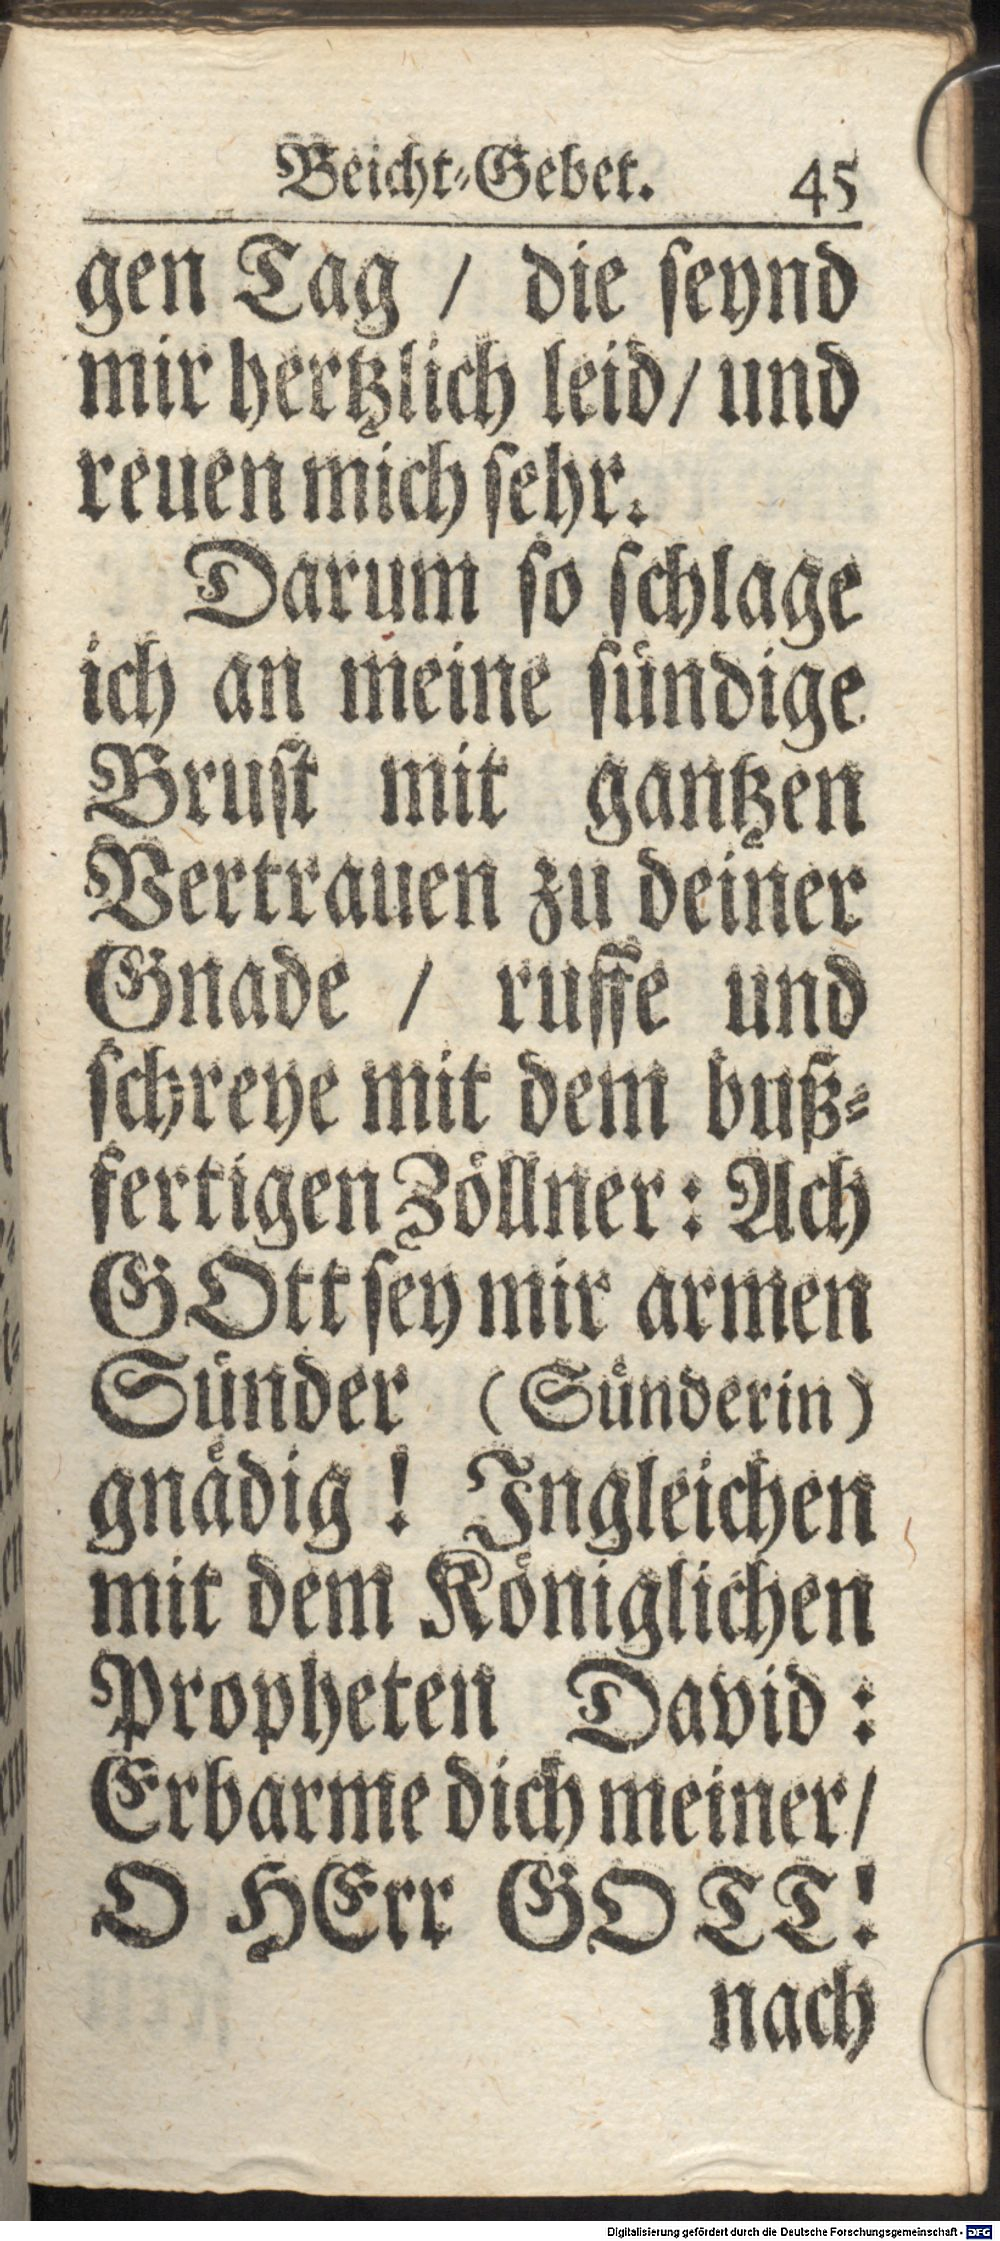 Beicht-Gebet. 45
gen Tag / die seynd
mir hertzlich leid / und
reuen mich sehr.
Darum so schlage
ich an meine sündige
Brust mit gantzen
Vertrauen zu deiner
Gnade / ruffe und
schreye mit dem buß-
fertigen Zöllner: Ach
GOtt sey mir armen
Sünder (Sünderin)
gnädig! Ingleichen
mit dem Königlichen
Propheten David:
Erbarme dich meiner /
O HErr GOTT!
nach
Digitalisierung gefördert durch die Deutsche Forschungsgemeinschaft - DFG